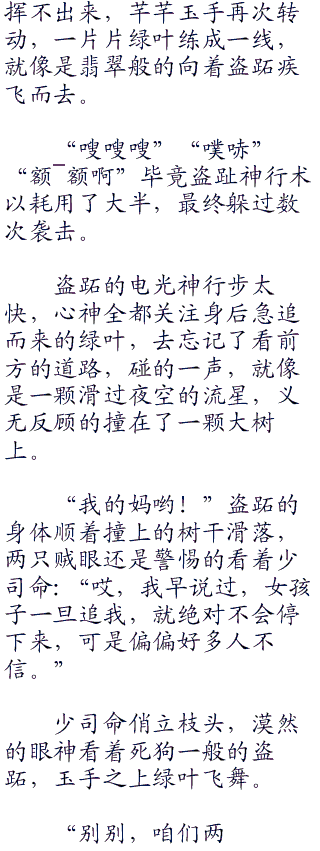 挥不出来，芊芊玉手再次转
动，一片片绿叶练成一线，
就像是翡翠般的向着盗跖疾
飞而去。
“嗖嗖嗖”“噗哧”
“额¯额啊”毕竟盗趾神行术
以耗用了大半，最终躲过数
次袭击。
盗跖的电光神行步太
快，心神全都关注身后急追
而来的绿叶，去忘记了看前
方的道路，碰的一声，就像
是一颗滑过夜空的流星，义
无反顾的撞在了一颗大树
上。
“我的妈哟！”盗跖的
身体顺着撞上的树干滑落，
两只贼眼还是警惕的看着少
司命：“哎，我早说过，女孩
子一旦追我，就绝对不会停
下来，可是偏偏好多人不
信。”
少司命俏立枝头，漠然
的眼神看着死狗一般的盗
跖，玉手之上绿叶飞舞。
“别别，咱们两